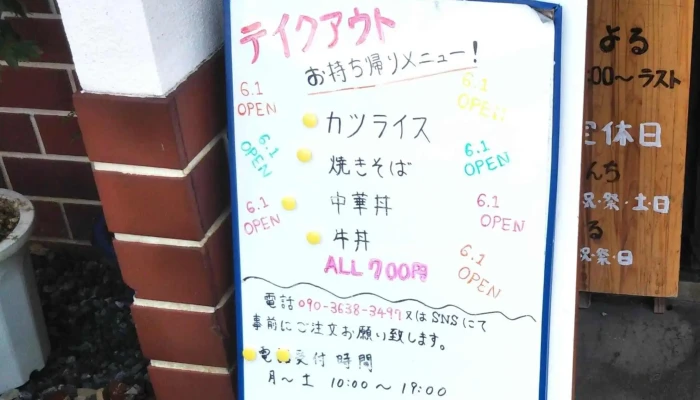 テイクアウト
お持ち帰りメニュー!
6.1
OPEN
6.1
OPEN
カツライス
6.1
OPEN
焼きそば
6.1
OPEN
中華丼
6.1
OPEN
6.1
OPEN
牛丼
6.1
OPEN
ALL 700円
電話 090-3638-3497 又は SNSにて
事前にご注文お願い致します。
電話受付時間
月〜土 10:00〜19:00
よる
:00〜ラスト
定休日
祝・祭・土・日
る
祝・祭・日